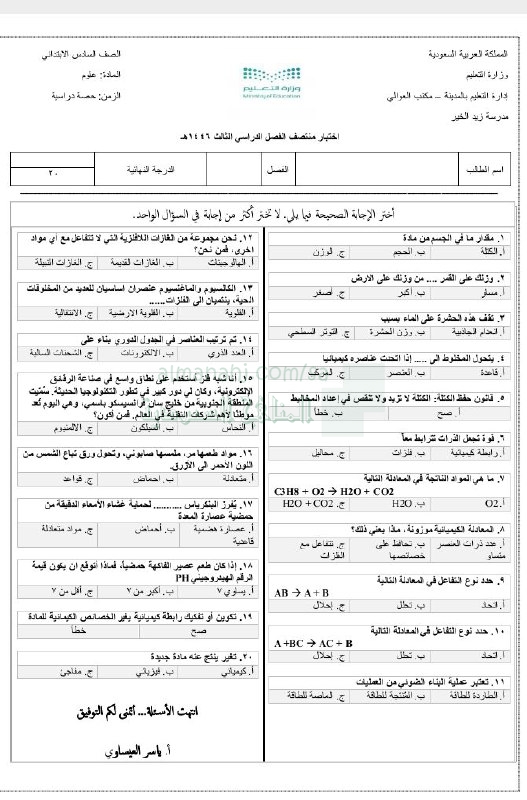 المملكة العربية السعودية
وزارة التعليم
إدارة التعليم بالمدينة – مكتب العوالي
مدرسة زيد الخير
وزارة التعليم
Ministry of Education
الصف السادس الابتدائي
المادة: علوم
الزمن: حصة دراسية
اختبار منتصف الفصل الدراسي الثالث ١٤٤٦هـ
اسم الطالب
الفصل
الدرجة النهائية
٢٠
أختر الإجابة الصحيحة فيما يلي. لا تختر أكثر من إجابة في السؤال الواحد.
١. مقدار ما في الجسم من مادة
أ. الكتلة ب. الحجم ج. الوزن
٢. وزنك على القمر .... من وزنك على الارض
أ. مساوٍ ب. أكبر ج. أصغر
٣. تقف هذه الحشرة على الماء بسبب
أ. انعدام الجاذبية ب. وزن الحشرة ج. التوتر السطحي
٤. يتحول المخلوط الى ..... إذا اتحدت عناصره كيميائيا
أ. قاعدة ب. العنصر ج. المركب
٥. قانون حفظ الكتلة: الكتلة لا تزيد ولا تنقص في إعداد المخاليط
أ. صح ب. خطأ
٦. قوة تجعل الذرات تترابط معاً
أ. رابطة كيميائية ب. فلزات ج. محاليل
٧. ما هي المواد الناتجة في المعادلة التالية
C3H8 + O2 → H2O + CO2
أ. O2 ب. H2O ج. H2O + CO2
٨. المعادلة الكيميائية موزونة، ماذا يعني ذلك؟
أ. عدد ذرات العنصر متساو ب. تحافظ على خصائصها ج. تتفاعل مع الفلزات
٩. حدد نوع التفاعل في المعادلة التالية
AB → A + B
أ. اتحاد ب. تحلل ج. إحلال
١٠. حدد نوع التفاعل في المعادلة التالية
A +BC → AC + B
أ. اتحاد ب. تحلل ج. إحلال
١١. تعتبر عملية البناء الضوئي من العمليات
أ. الطاردة للطاقة ب. المنتجة للطاقة ج. الماصة للطاقة
١٢. نحن مجموعة من الغازات اللافلزية التي لا تتفاعل مع أي مواد
اخرى، فمن نحن؟
أ. الهالوجينات ب. الغازات القديمة ج. الغازات النبيلة
١٣. الكالسيوم والماغنسيوم عنصران اساسيان للعديد من المخلوقات
الحية، ينتميان الى الفلزات......
أ. القلوية ب. القلوية الارضية ج. الانتقالية
١٤. تم ترتيب العناصر في الجدول الدوري بناء على
أ. العدد الذري ب. الالكترونات ج. الشحنات السالبة
١٥. أنا شبه فلز أستخدم على نطاق واسع في صناعة الرقائق
الإلكترونية، وكان لي دور كبير في تطور التكنولوجيا الحديثة. سُمّيت
المنطقة الجنوبية من خليج سان فرانسيسكو باسمي، وهي اليوم تُعد
موطنًا لأهم شركات التقنية في العالم. فمن أكون؟
أ. النحاس ب. السيلكون ج. الالمنيوم
١٦. مواد طعمها مر، ملمسها صابوني، وتحول ورق تباع الشمس من
اللون الاحمر الى الأزرق.
أ. متعادلة ب. احماض ج. قواعد
١٧. يُفرز البنكرياس .......... لحماية غشاء الأمعاء الدقيقة من
حمضية عصارة المعدة
أ. عصارة هضمية قاعدية ب. أحماض ج. مواد متعادلة
١٨. إذا كان طعم عصير الفاكهة حمضياً، فماذا أتوقع ان يكون قيمة
الرقم الهيدروجيني PH
أ. يساوي ٧ ب. أكبر من ٧ ج. أقل من ٧
١٩. تكوين أو تفكيك رابطة كيميائية يغير الخصائص الكيمائية للمادة
صح خطأ
٢٠. تغير ينتج عنه مادة جديدة
أ. كيميائي ب. فيزيائي ج. مفاجئ
انتهت الأسئلة... أتمنى لكم التوفيق
أ. ياسر العيساوي